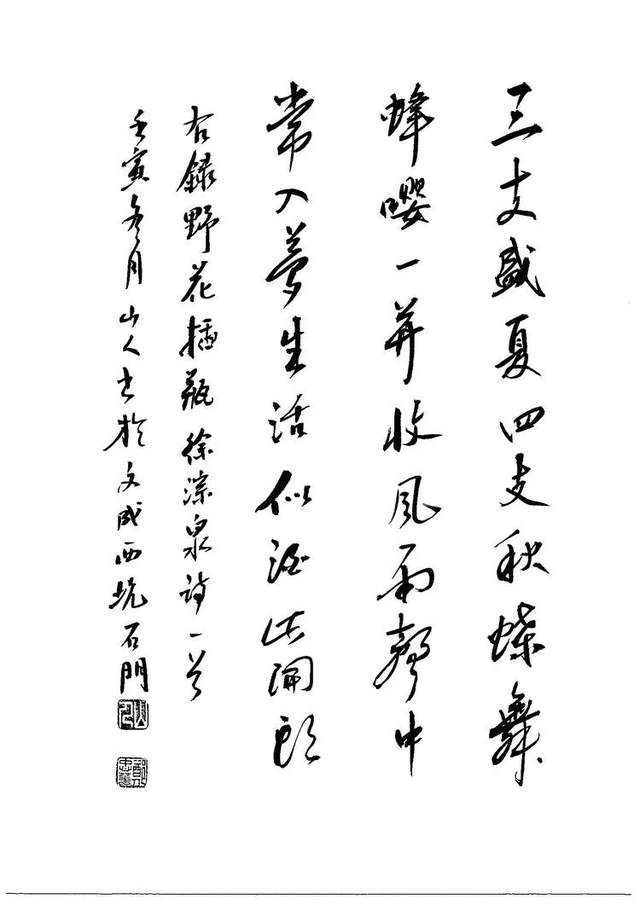 三支盛夏四支秋蝶舞
蜂嘤一并收风雨声中
常入夢生活似酒此開頭
右錄野花插瓶徐淙泉诗一首
壬寅冬月山人书於文成西坑石門